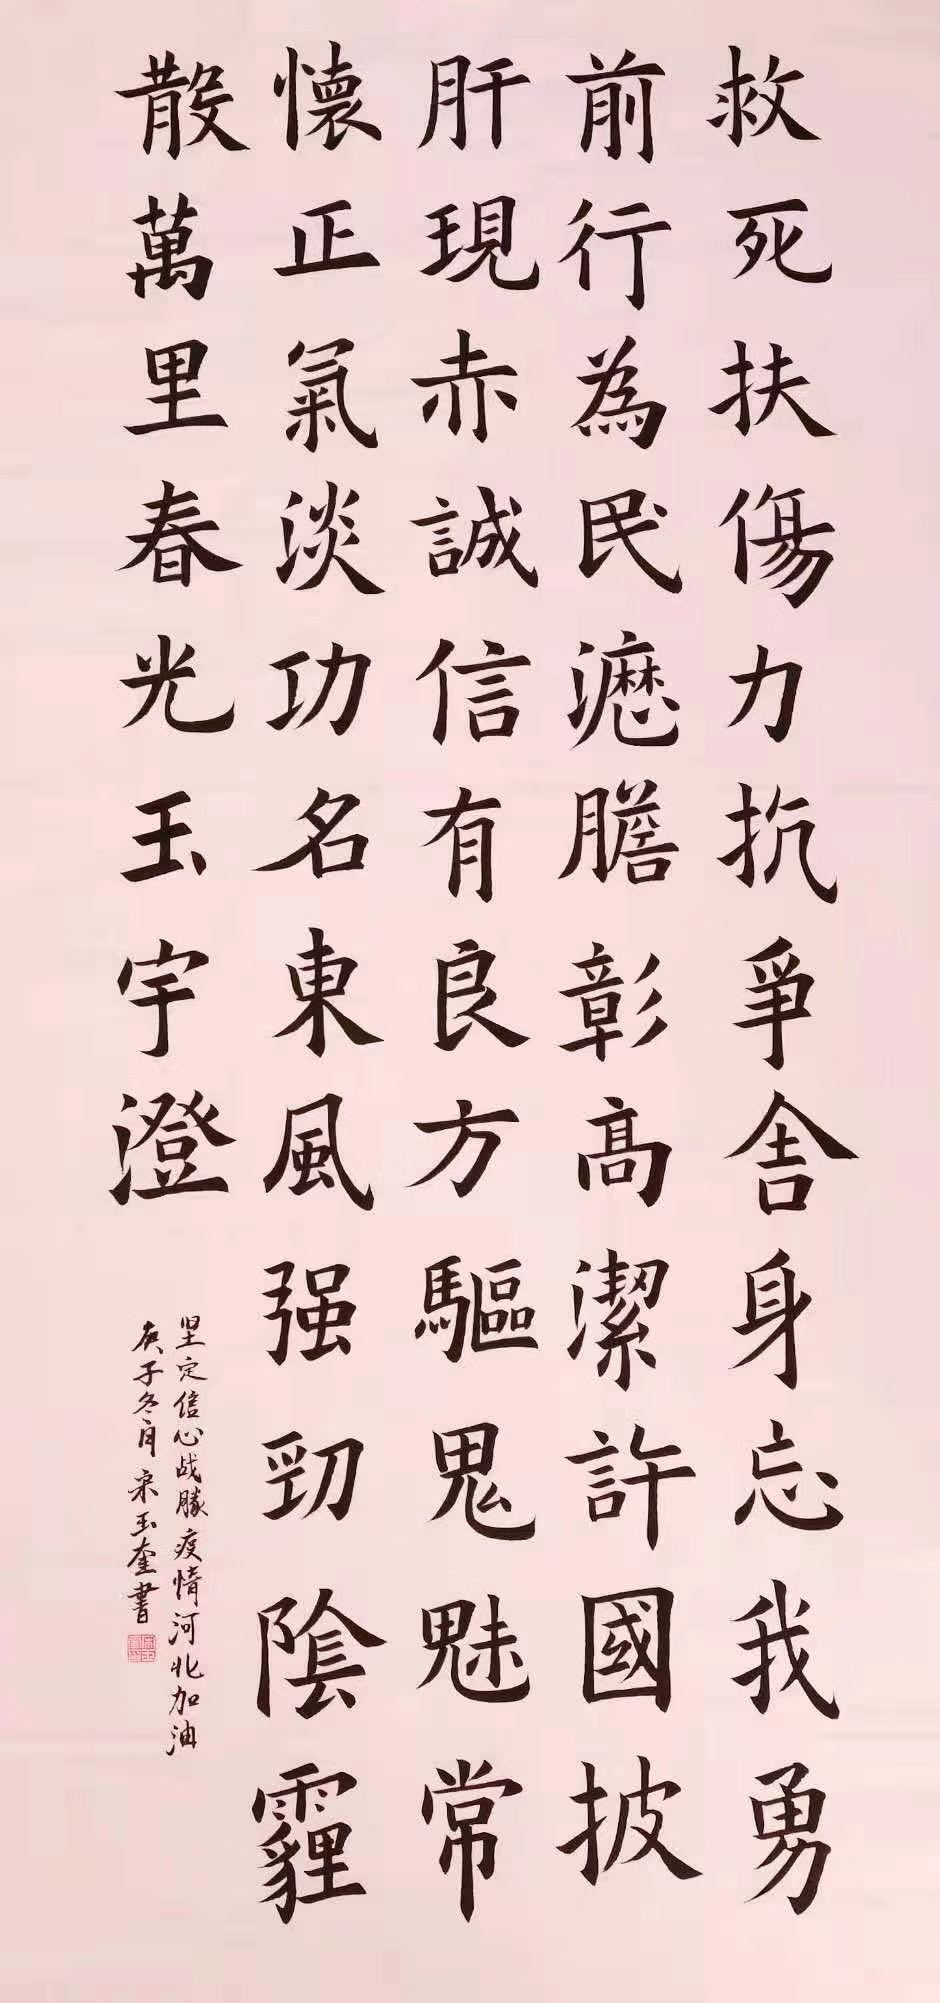 救死扶傷力抗爭舍身忘我勇
前行為民瀝膽彰高潔許國披
肝現赤誠信有良方驅鬼魅常
懷正氣淡功名東風强勁陰霾
散萬里春光玉宇澄
坚定信心战勝疫情河北加油
庚子冬月宋玉奎書